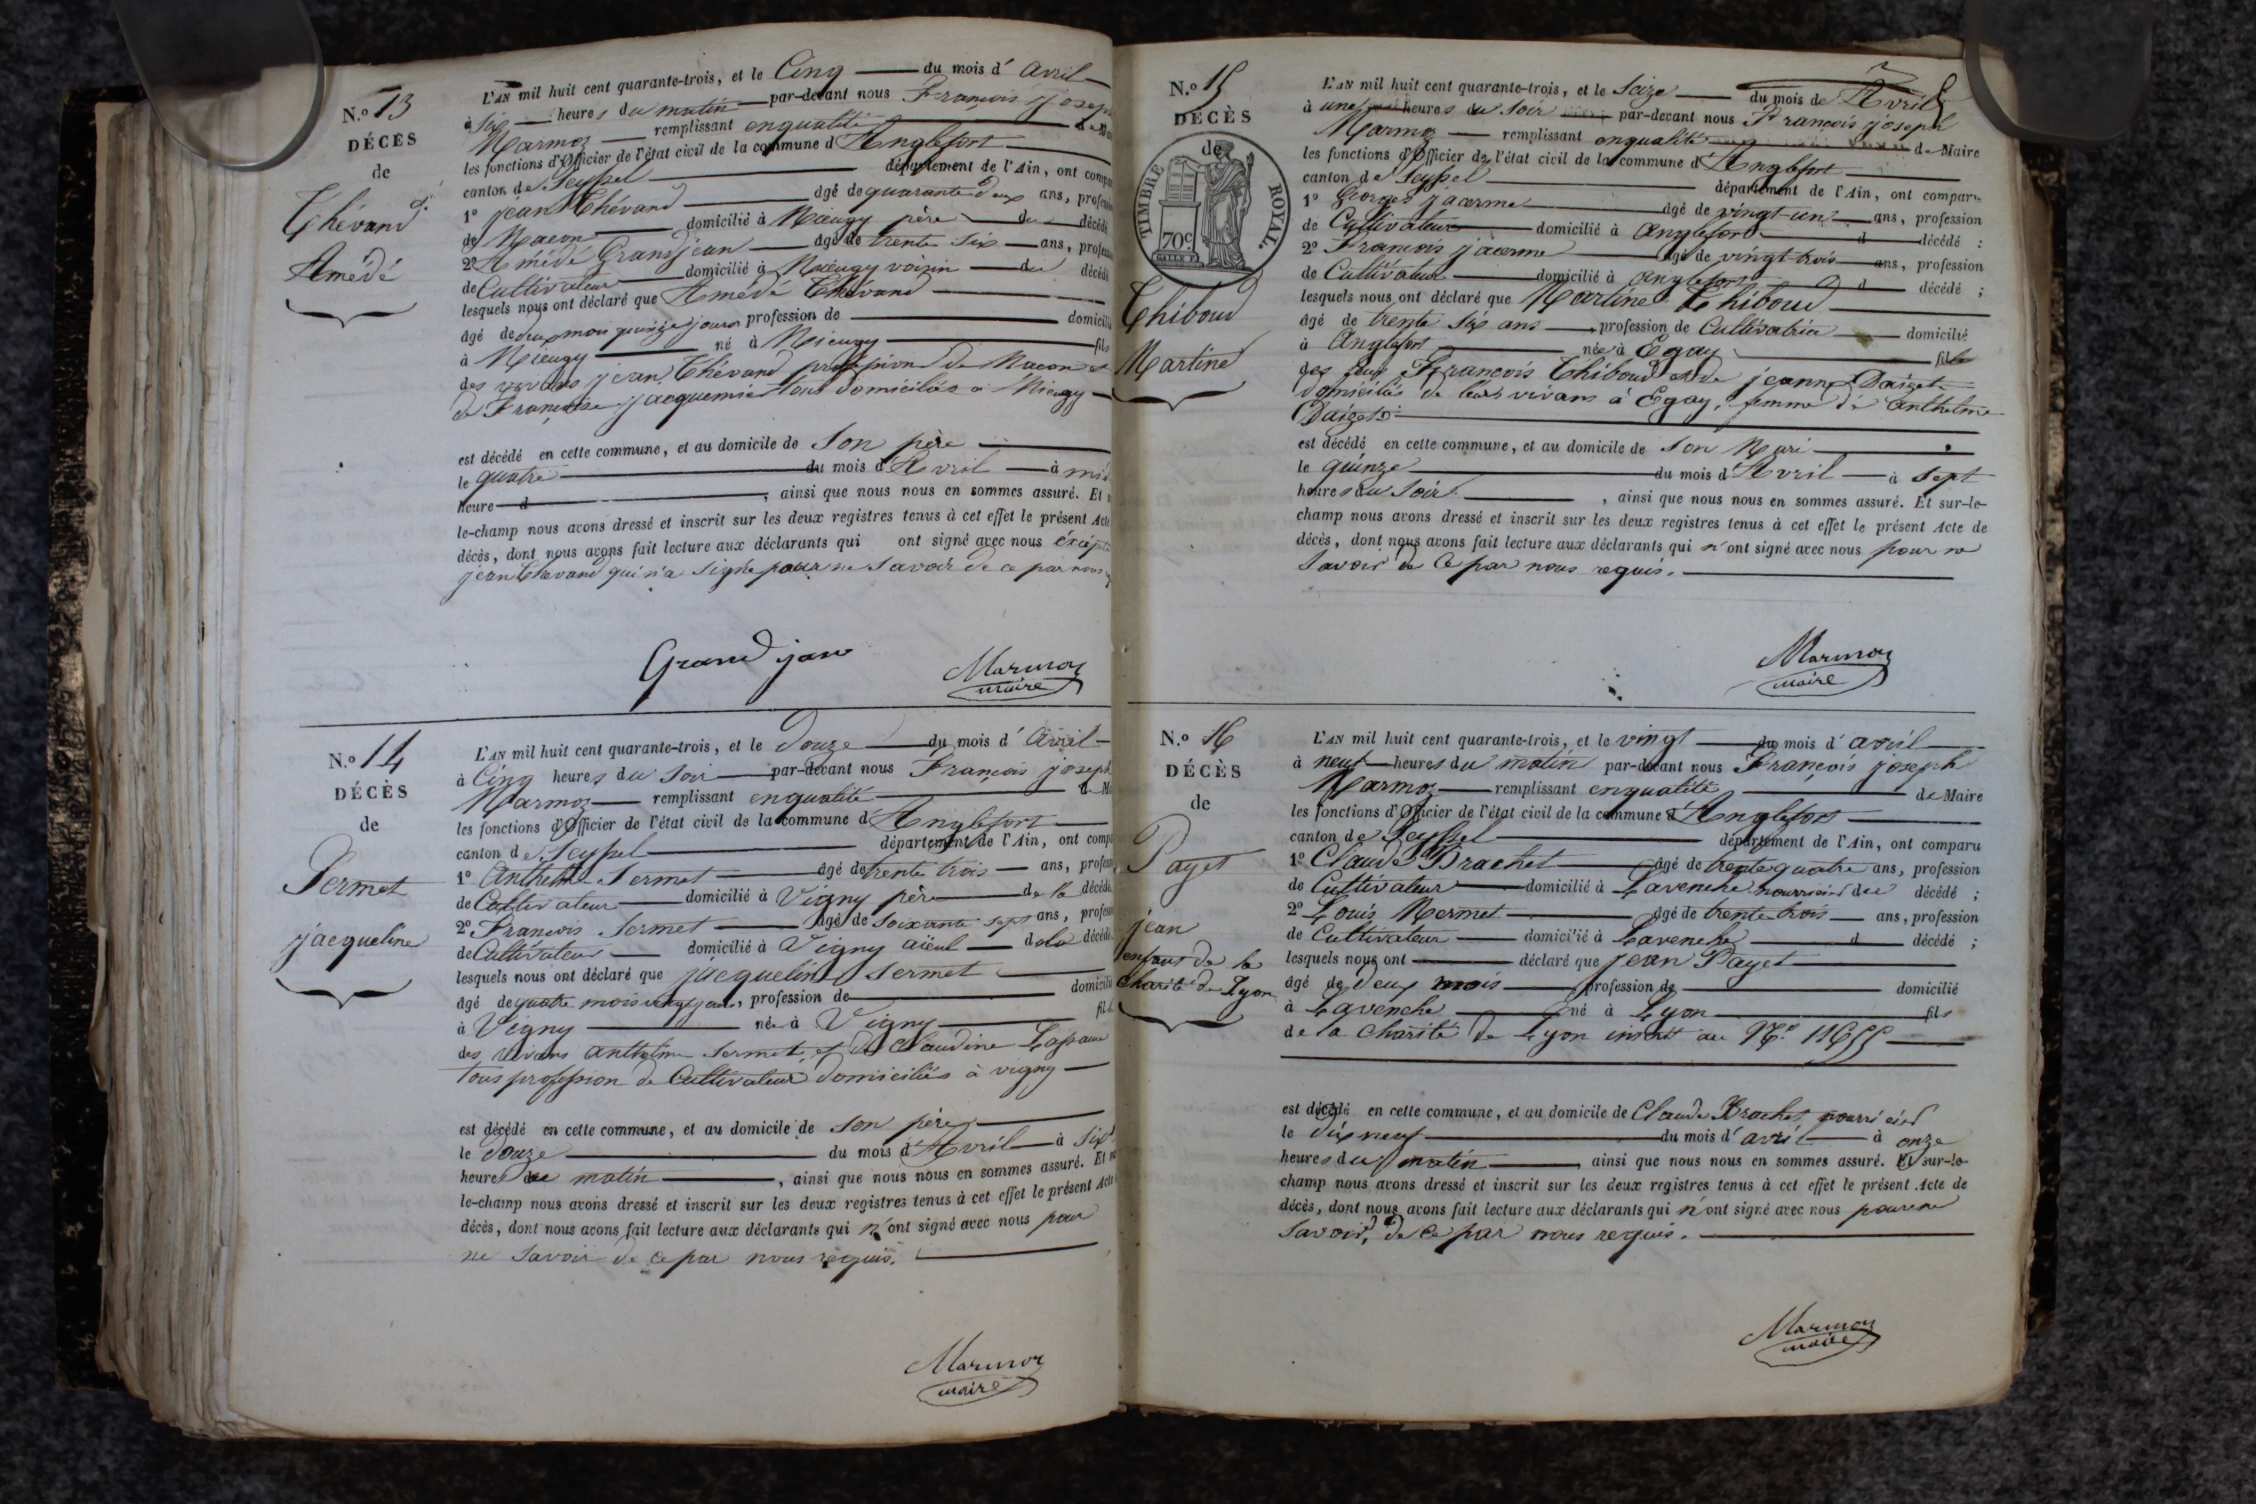 N.o 13
DÉCÈS
de
Thévand
Amédé
L'AN mil huit cent quarante-trois, et le Cinq du mois d' avril
à six heures du matin par-devant nous François joseph
Marmoz remplissant enqualité de
les fonctions d'Officier de l'état civil de la commune d'Anglefort
canton de Seyssel département de l'Ain, ont
1º jean Thévand âgé de quarante deux ans,
de Macon domicilié à Mieugy père du décédé
2º Amédé Grandjean âgé de trente six ans,
de Cultivateur domicilié à Mieugy voisin du décédé
lesquels nous ont déclaré que Amédé Thévand
âgé de deux mois quinze jours profession de domicilié
à Mieugy né à Mieugy fils
des vivans jean Thévand profession de Macon et
de Françoise jacquemier tous domiciliés à Mieugy
est décédé en cette commune, et au domicile de Son père
le quatre du mois d'Avril à
heure d , ainsi que nous nous en sommes assuré. Et
le-champ nous avons dressé et inscrit sur les deux registres tenus à cet effet le présent Acte
décès, dont nous avons fait lecture aux déclarants qui ont signé avec nous excepté
jean Thevand qui n'a signé pour ne Savoir de ce par nous
Grand jean
Marmoz
maire
N.o 14
DÉCÈS
de
Sermet
jacqueline
L'AN mil huit cent quarante-trois, et le Douze du mois d' avril
à Cinq heures du Soir par-devant nous François joseph
Marmoz remplissant enqualité
les fonctions d'Officier de l'état civil de la commune d'Anglefort
canton de Seyssel département de l'Ain, ont
1º Anthelme Sermet âgé de trente trois ans,
de Cultivateur domicilié à Vigny père de la décédé
2º François Sermet âgé de soixante sept ans,
de Cultivateur domicilié à Vigny aïeul de la décédé
lesquels nous ont déclaré que jacqueline Sermet
âgé de quatre mois vingt jours, profession de domicilié
à Vigny née à Vigny
des vivans anthelme Sermet et de Claudine
tous profession de Cultivateur domiciliés à vigny
est décédé en cette commune, et au domicile de son père
le douze du mois d'Avril à Six
heures du matin , ainsi que nous nous en sommes assuré. Et
le-champ nous avons dressé et inscrit sur les deux registres tenus à cet effet le présent Acte
décès, dont nous avons fait lecture aux déclarants qui n'ont signé avec nous pour
ne Savoir de ce par nous requis.
Marmoz
maire
N.o 15
DÉCÈS
de
TIMBRE ROYAL.
70c
Thiboud
Martine
L'AN mil huit cent quarante-trois, et le Seize du mois de Avril
à une heures du Soir par-devant nous François joseph
Marmoz remplissant enqualité de Maire
les fonctions d'Officier de l'état civil de la commune d'Anglefort
canton de Seyssel département de l'Ain, ont comparu
1º Georges jacerme âgé de vingt-un ans, profession
de Cultivateur domicilié à Anglefort d décédé ;
2º François jacerme âgé de vingt-trois ans, profession
de Cultivateur domicilié à Anglefort d décédé ;
lesquels nous ont déclaré que Martine Thiboud
âgé de trente six ans profession de Cultivatrice domicilié
à Anglefort née à Egay fille
des feus François Thiboud et de jeanne Daizet
domiciliés de leurs vivans à Egay, femme de Anthelme
Daizet
est décédé en cette commune, et au domicile de Son Mari
le quinze du mois d'Avril à sept
heures du Soir , ainsi que nous nous en sommes assuré. Et sur-le-
champ nous avons dressé et inscrit sur les deux registres tenus à cet effet le présent Acte de
décès, dont nous avons fait lecture aux déclarants qui n'ont signé avec nous pour ne
Savoir de Ce par nous requis.
Marmoz
maire
N.o 16
DÉCÈS
de
Payet
jean
enfant de la
Charité de Lyon
L'AN mil huit cent quarante-trois, et le vingt du mois d' avril
à neuf heures du matin par-devant nous François joseph
Marmoz remplissant enqualité de Maire
les fonctions d'Officier de l'état civil de la commune d'Anglefort
canton de Seyssel département de l'Ain, ont comparu
1º Claude Brachet âgé de trente quatre ans, profession
de Cultivateur domicilié à Lavenche nourricier du décédé ;
2º Louis Mermet âgé de trente trois ans, profession
de Cultivateur domicilié à Lavenche d décédé ;
lesquels nous ont déclaré que jean Payet
âgé de deux mois profession de domicilié
à Lavenche né à Lyon fils
de la Charité de Lyon inscrit au Nº 11655
est décédé en cette commune, et au domicile de Claude Brachet nourricier
le dix neuf du mois d' avril à onze
heures du matin , ainsi que nous nous en sommes assuré. Et sur-le-
champ nous avons dressé et inscrit sur les deux registres tenus à cet effet le présent Acte de
décès, dont nous avons fait lecture aux déclarants qui n'ont signé avec nous pour ne
Savoir, de Ce par nous requis.
Marmoz
maire